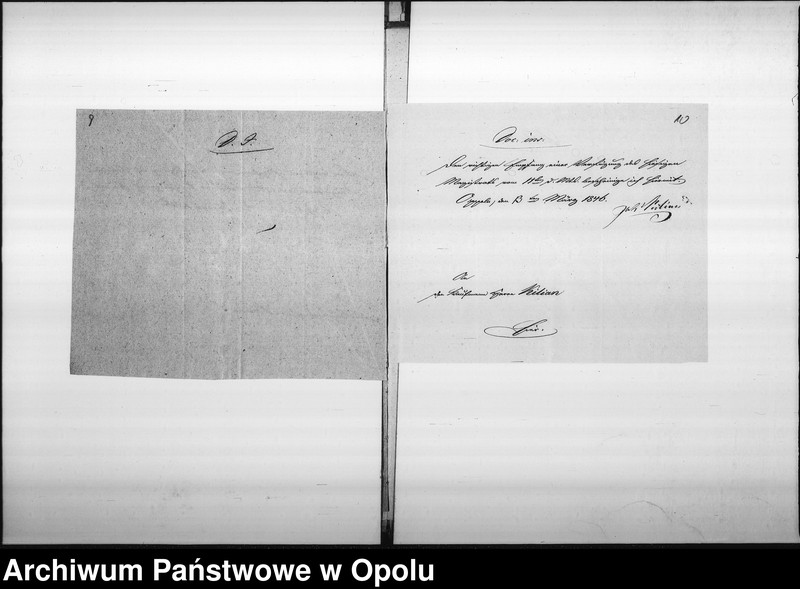 9
D. I.
10
Doc. ins.
Den richtigen Empfang einer Verfügung des hiesigen
Magistrats vom 11ten d. Mts. bescheinige ich hiermit
Oppeln, den 13ten März 1846.
An
den Kaufmann Herrn Kilian
hier.
Archiwum Państwowe w Opolu